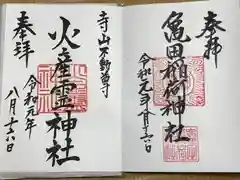 奉拝
亀田稲荷神社
令和元年八月十六日
奉拝
寺山不動尊寺
火産霊神社
令和元年
八月十六日